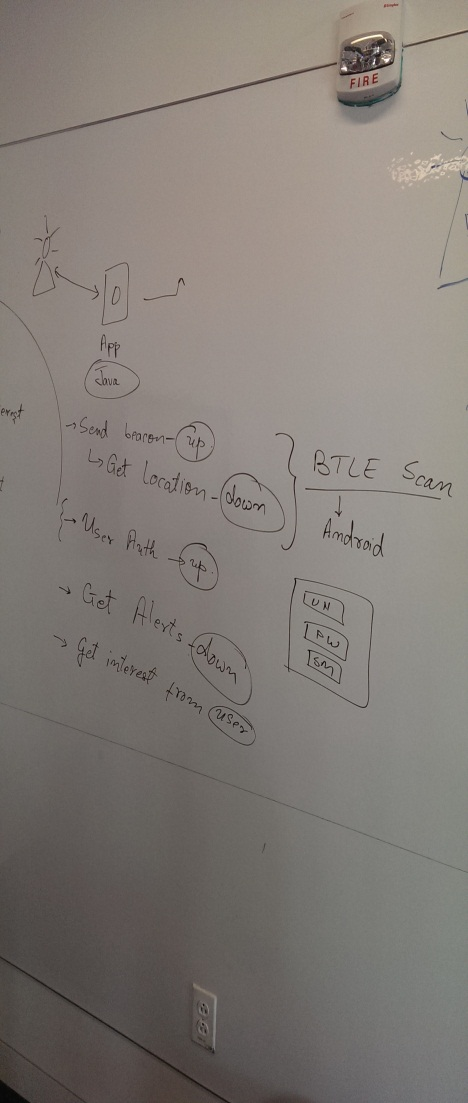 FIRE
App
Java
→ Send beacon - up
↳ Get Location - down
→ User Auth → up
→ Get Alerts - down
→ Get interest from user
BTLE Scan
↓
Android
UN
PW